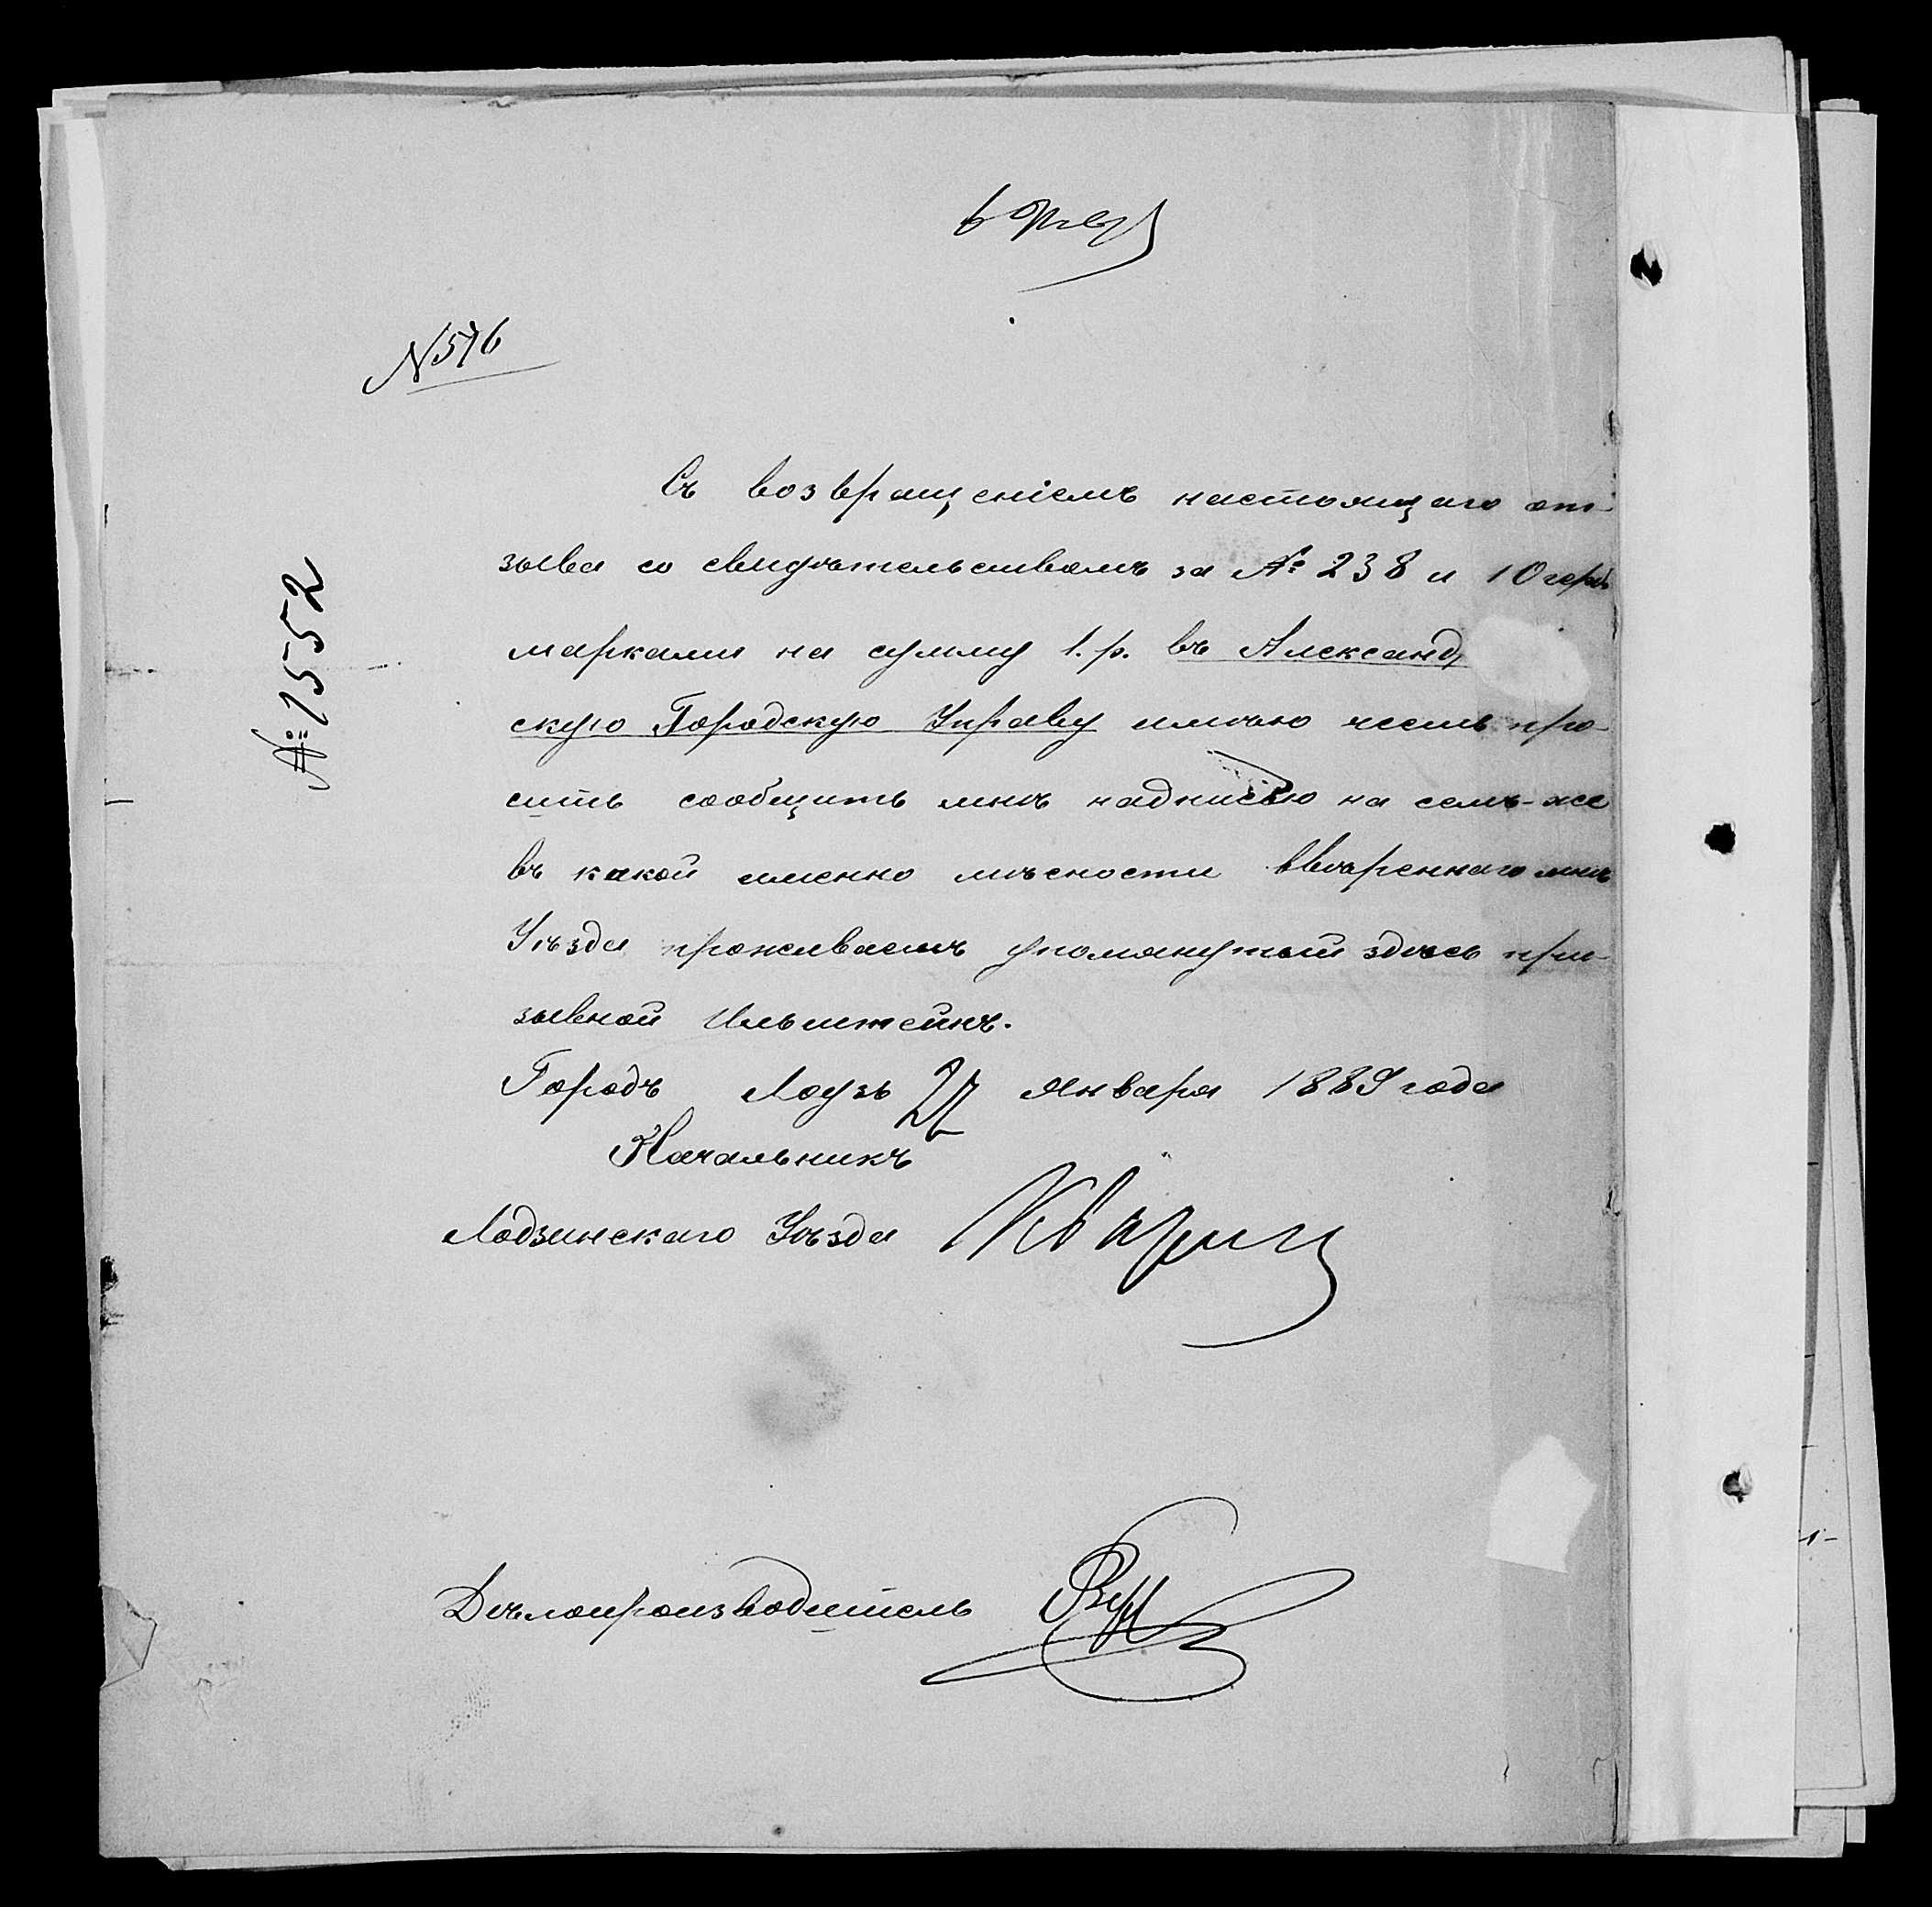 6 Февр
N 576
№ 1552
Съ возвращеніемъ настоящаго от-
зыва со свидѣтельствомъ за № 238 и 10 герб
марками на сумму 1. р. въ Александ
скую Городскую Управу имѣю честь про-
сить сообщить мнѣ надписью на семъ-же
въ какой именно мѣсности ввѣреннаго мнѣ
Уѣзда проживаетъ упомянутый здѣсь при-
зывной Ильштейнъ.
Городъ Лодзь 27 Января 1889 года
Начальникъ
Лодзинскаго Уѣзда
Дѣлопроизводитель